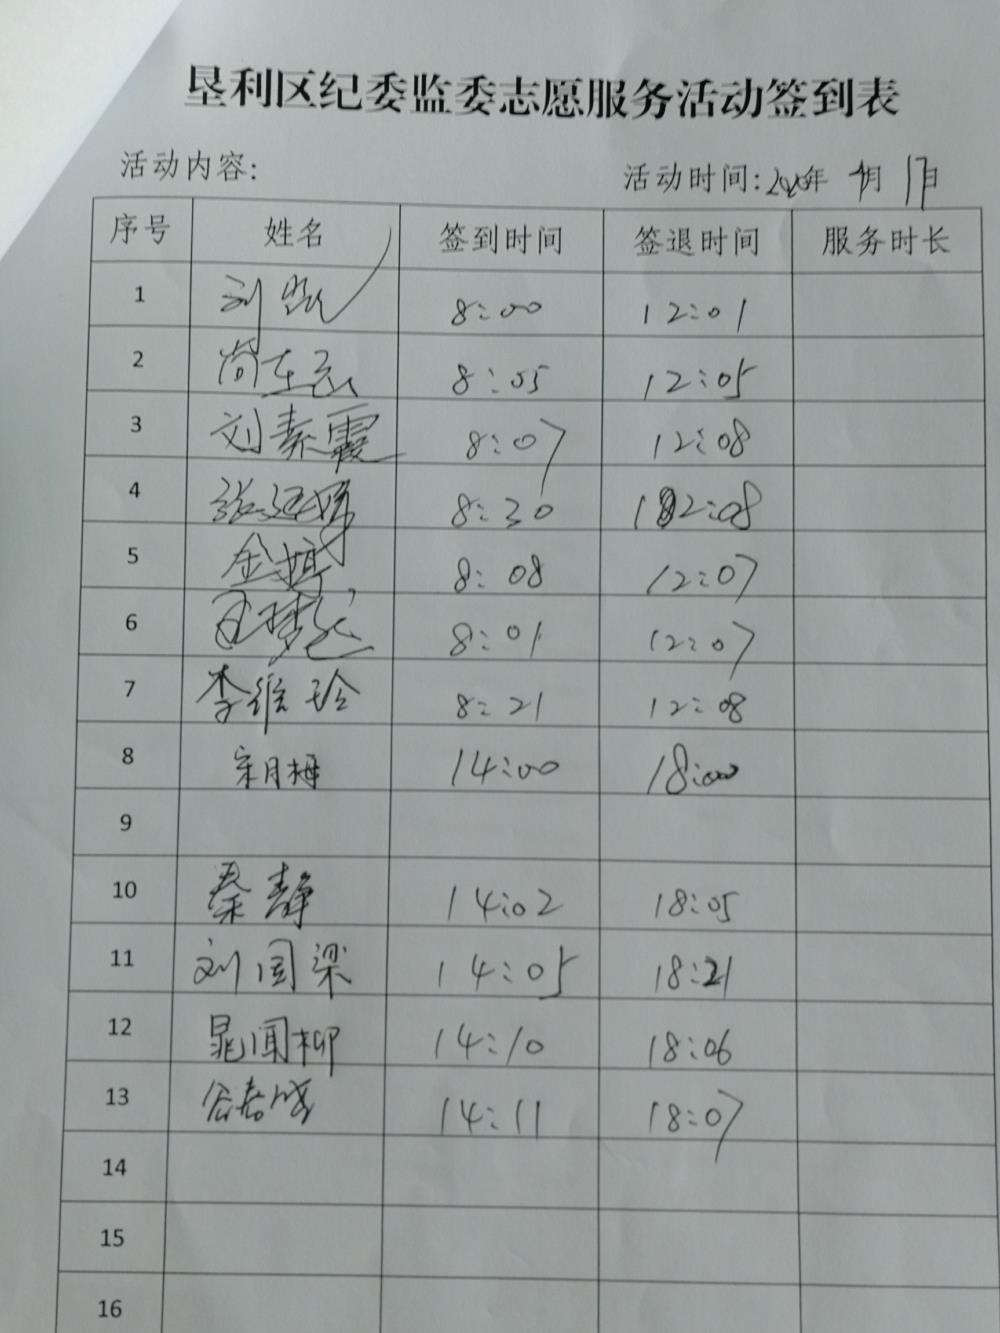 垦利区纪委监委志愿服务活动签到表
活动内容: 活动时间:2020年 月 17日
序号 姓名 签到时间 签退时间 服务时长
1 刘凯 8:00 12:01
2 尚 8:05 12:05
3 刘素霞 8:07 12:08
4 张 8:30 12:08
5 金婷 8:08 12:07
6 8:01 12:07
7 李维玲 8:21 12:08
8 宋月梅 14:00 18:00
9
10 秦静 14:02 18:05
11 刘国梁 14:05 18:21
12 晁闻柳 14:10 18:06
13 14:11 18:07
14
15
16